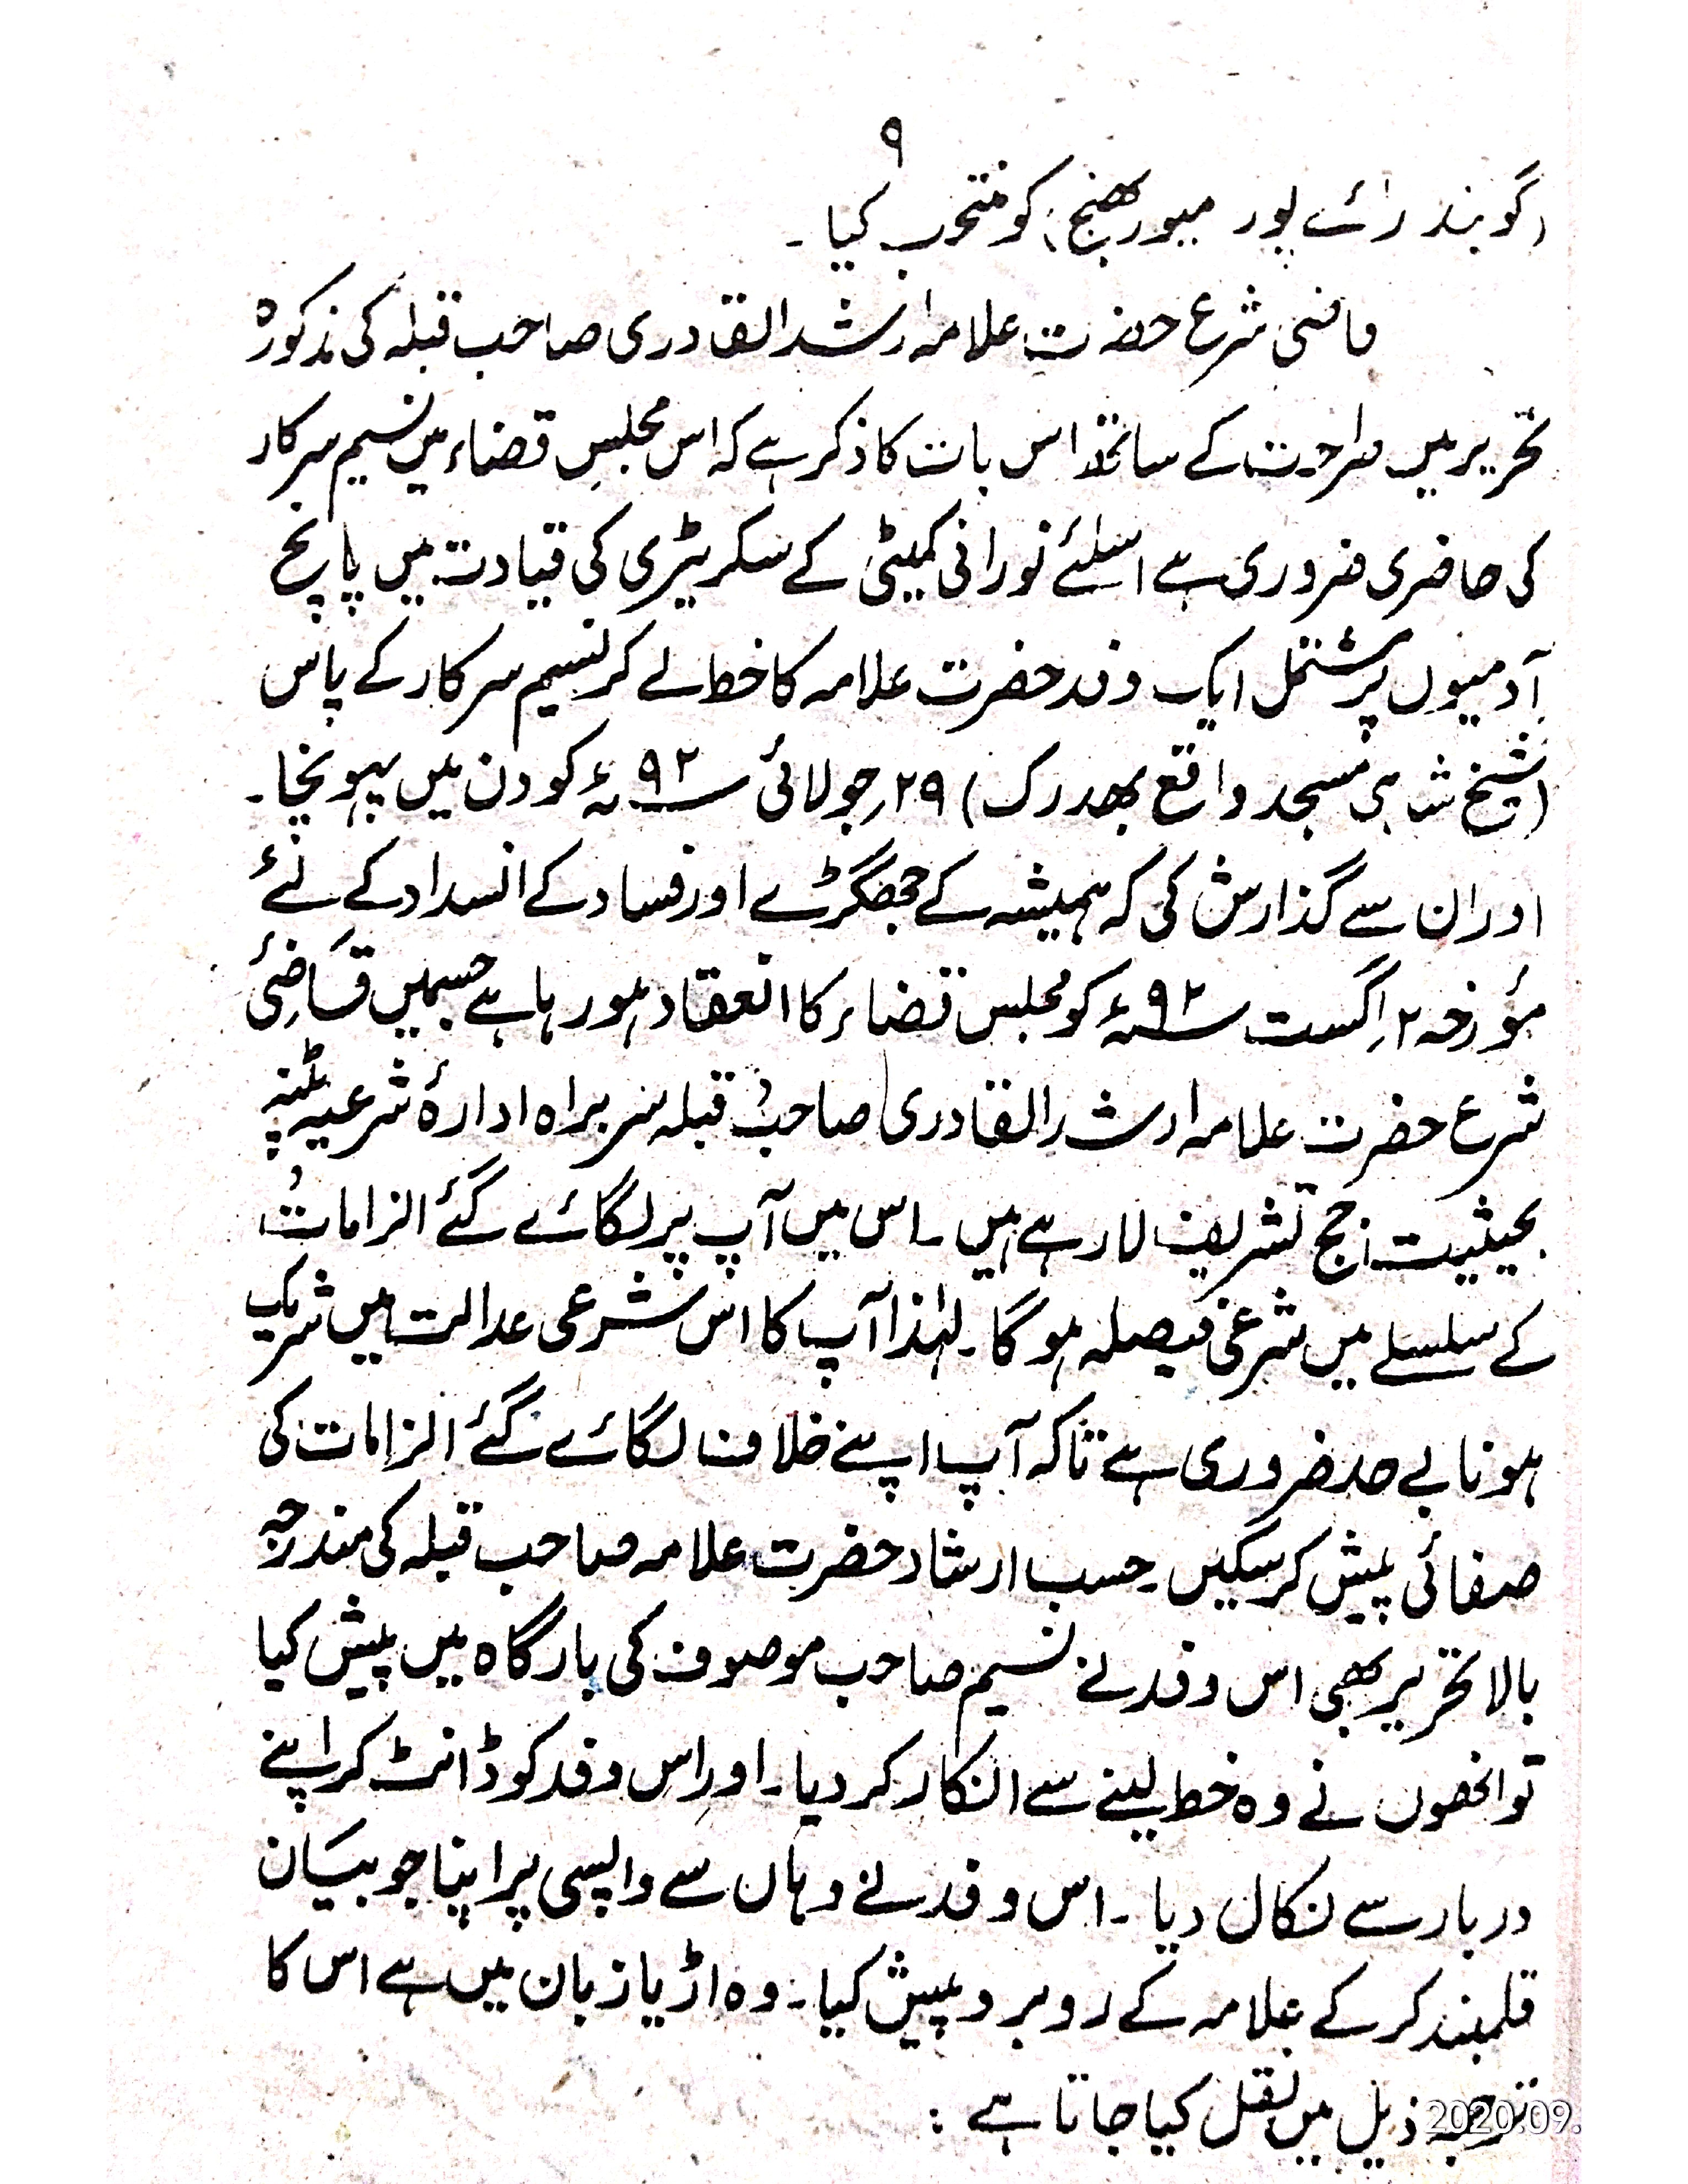 ۹
(گوبند رائے پور میوربھنج) کو منتخب کیا ۔
قاضی شرع حضرت علامہ ارشد القادری صاحب قبلہ کی مذکورہ
تحریر میں صراحت کے ساتھ اس بات کا ذکر ہے کہ اس مجلس قضاء میں نسیم سرکار
کی حاضری ضروری ہے اسلئے نورانی کمیٹی کے سکریٹری کی قیادت میں پانچ
آدمیوں پر مشتمل ایک وفد حضرت علامہ کا خط لے کر نسیم سرکار کے پاس
(شیخ شاہی مسجد واقع بھدرک) ۲۹؍جولائی ۹۲ء کو دن میں پہونچا ۔
اور ان سے گذارش کی کہ ہمیشہ کے جھگڑے اور فساد کے انسداد کے لئے
مؤرخہ ۲؍اگست ۹۲ء کو مجلس قضاء کا انعقاد ہو رہا ہے جسمیں قاضئ
شرع حضرت علامہ ارشد القادری صاحب قبلہ سربراہ ادارۂ شرعیہ پٹنہ
بحیثیت جج تشریف لا رہے ہیں ۔ اس میں آپ پر لگائے گئے الزامات
کے سلسلے میں شرعی فیصلہ ہوگا ۔ لہٰذا آپ کا اس شرعی عدالت میں شریک
ہونا بے حد ضروری ہے تاکہ آپ اپنے خلاف لگائے گئے الزامات کی
صفائی پیش کرسکیں ۔ حسب ارشاد حضرت علامہ صاحب قبلہ کی مندرجہ
بالا تحریر بھی اس وفد نے نسیم صاحب موصوف کی بارگاہ میں پیش کیا
تو انھوں نے وہ خط لینے سے انکار کر دیا ۔ اور اس وفد کو ڈانٹ کر اپنے
دربار سے نکال دیا ۔ اس وفد نے وہاں سے واپسی پر اپنا جو بیان
قلمبند کر کے علامہ کے روبرو پیش کیا ۔ وہ اڑیا زبان میں ہے اس کا
ترجمہ ذیل میں نقل کیا جاتا ہے :
2020.09.